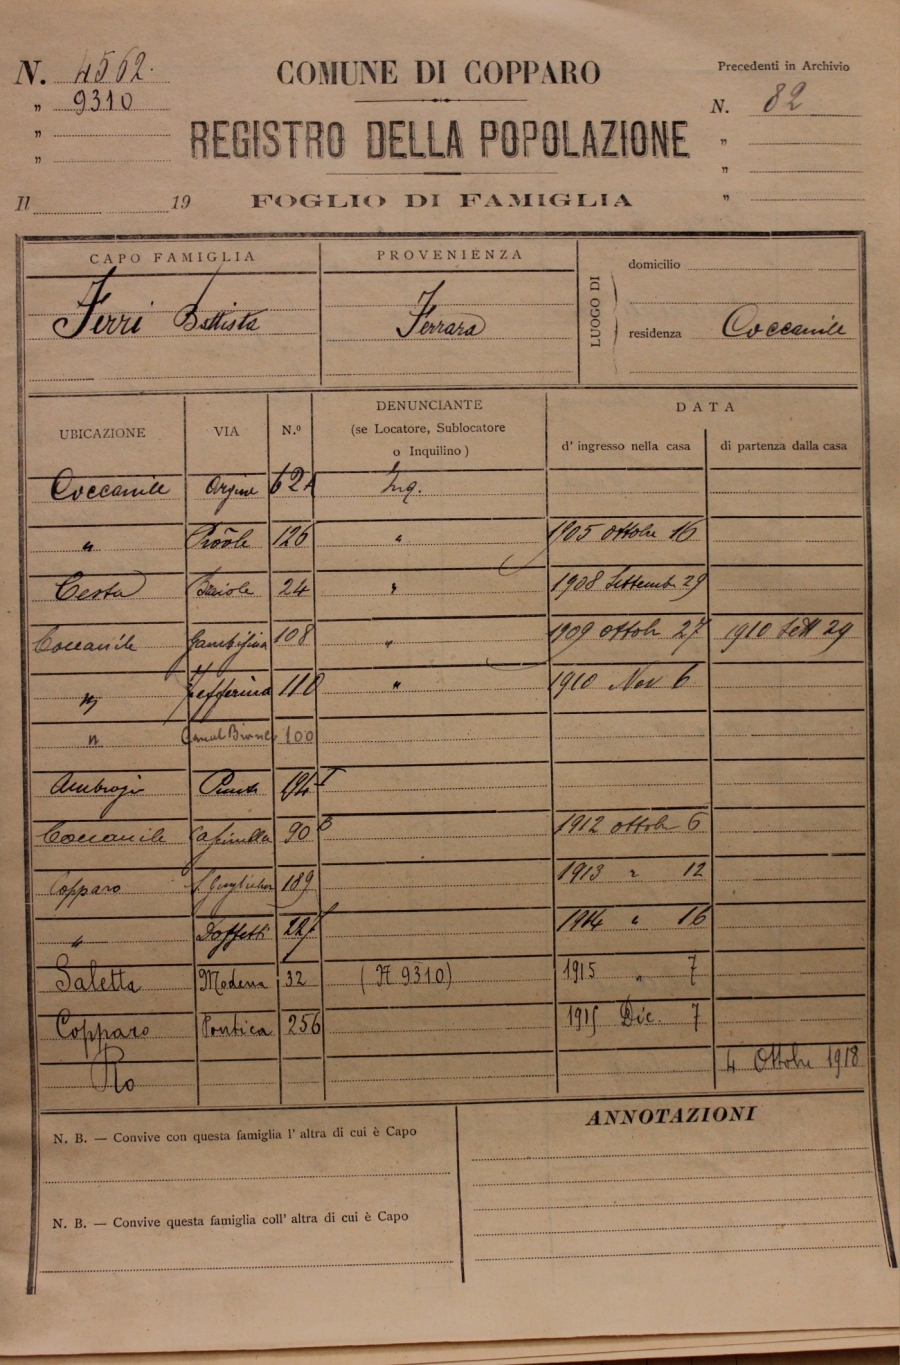 N. 4562.
" 9310
"
"
COMUNE DI COPPARO
REGISTRO DELLA POPOLAZIONE
Precedenti in Archivio
N. 82
"
"
"
Il 19 FOGLIO DI FAMIGLIA
CAPO FAMIGLIA
Ferri Battista
PROVENIENZA
Ferrara
LUOGO DI
domicilio
residenza Coccanile
UBICAZIONE VIA N.º DENUNCIANTE (se Locatore, Sublocatore o Inquilino) DATA d' ingresso nella casa di partenza dalla casa
Coccanile Argine 62A Inq.
" 126 " 1905 Ottobre 16
Cesta 24 " 1908 Settemb 29
Coccanile 108 " 1909 Ottobr 27 1910 Sett 29
" Zefferina 110 " 1910 Nov 6
" Canal Bianco 100
Ambrogio 194
Coccanile 90 1912 Ottobr 6
Copparo 189 1913 " 12
" 227 1914 " 16
Saletta Modena 32 (N 9310) 1915 " 7
Copparo Pontica 256 1915 Dic. 7
Ro 4 Ottobre 1918
N. B. — Convive con questa famiglia l' altra di cui è Capo
N. B. — Convive questa famiglia coll' altra di cui è Capo
ANNOTAZIONI